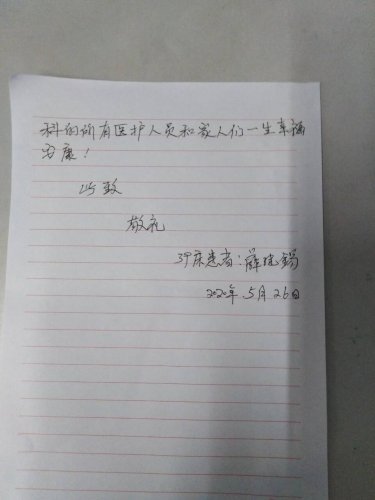 科的所有医护人员和家人们一生幸福
安康！
此致
敬礼
39床患者：薛
2020年5月26日